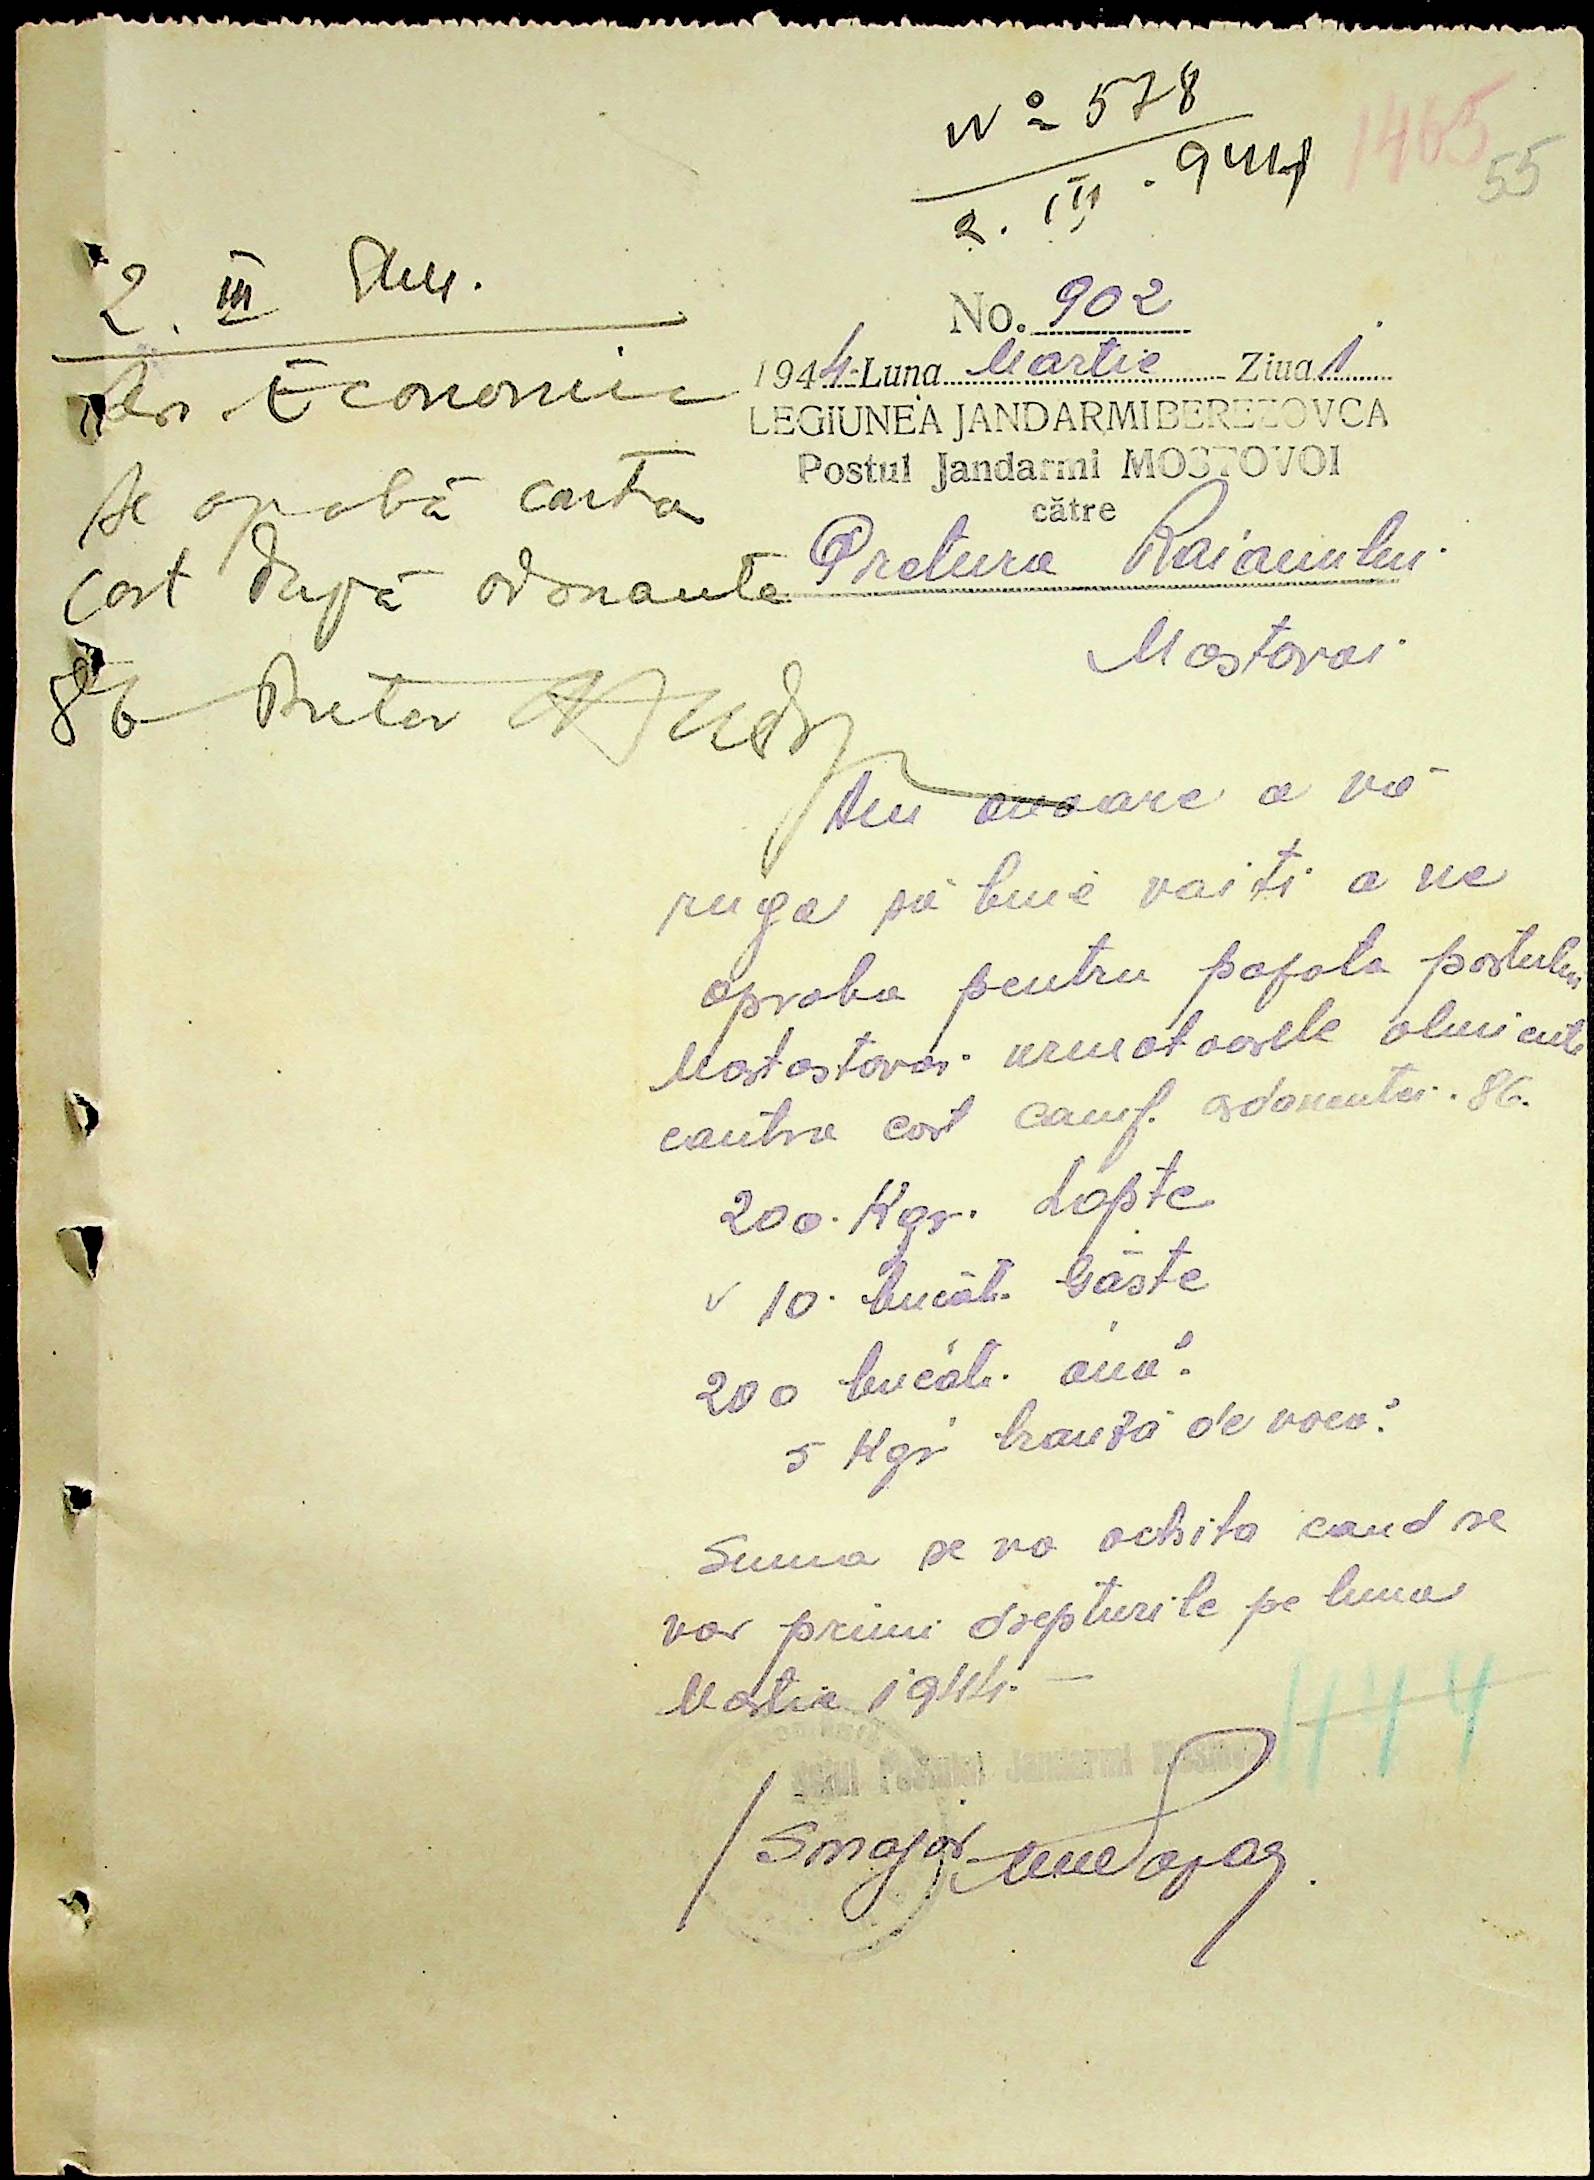 No 578
2. III. 944
1465
55
2. III 944.
Serv. Economic
Se aprobă contra
cost după ordonanta
86 Pretor
No. 902
1944 Luna Martie Ziua 1
LEGIUNEA JANDARMI BEREZOVCA
Postul Jandarmi MOSTOVOI
către
Pretura Raianului
Mostovoi
Am onoare a vă
ruga să bine voiti a ne
aproba pentru popota postului
Mostostovoi urmatoarele alimente
contra cost conf. ordonantei 86.
200 Kgr. Lapte
✓ 10 bucăti Găste
200 bucăti ouă.
5 Kgr branză de vacă.
Suma se va achita cand se
vor primi drepturile pe luna
Martie 1944.—
444
Șeful Postului Jandarmi Mostovoi